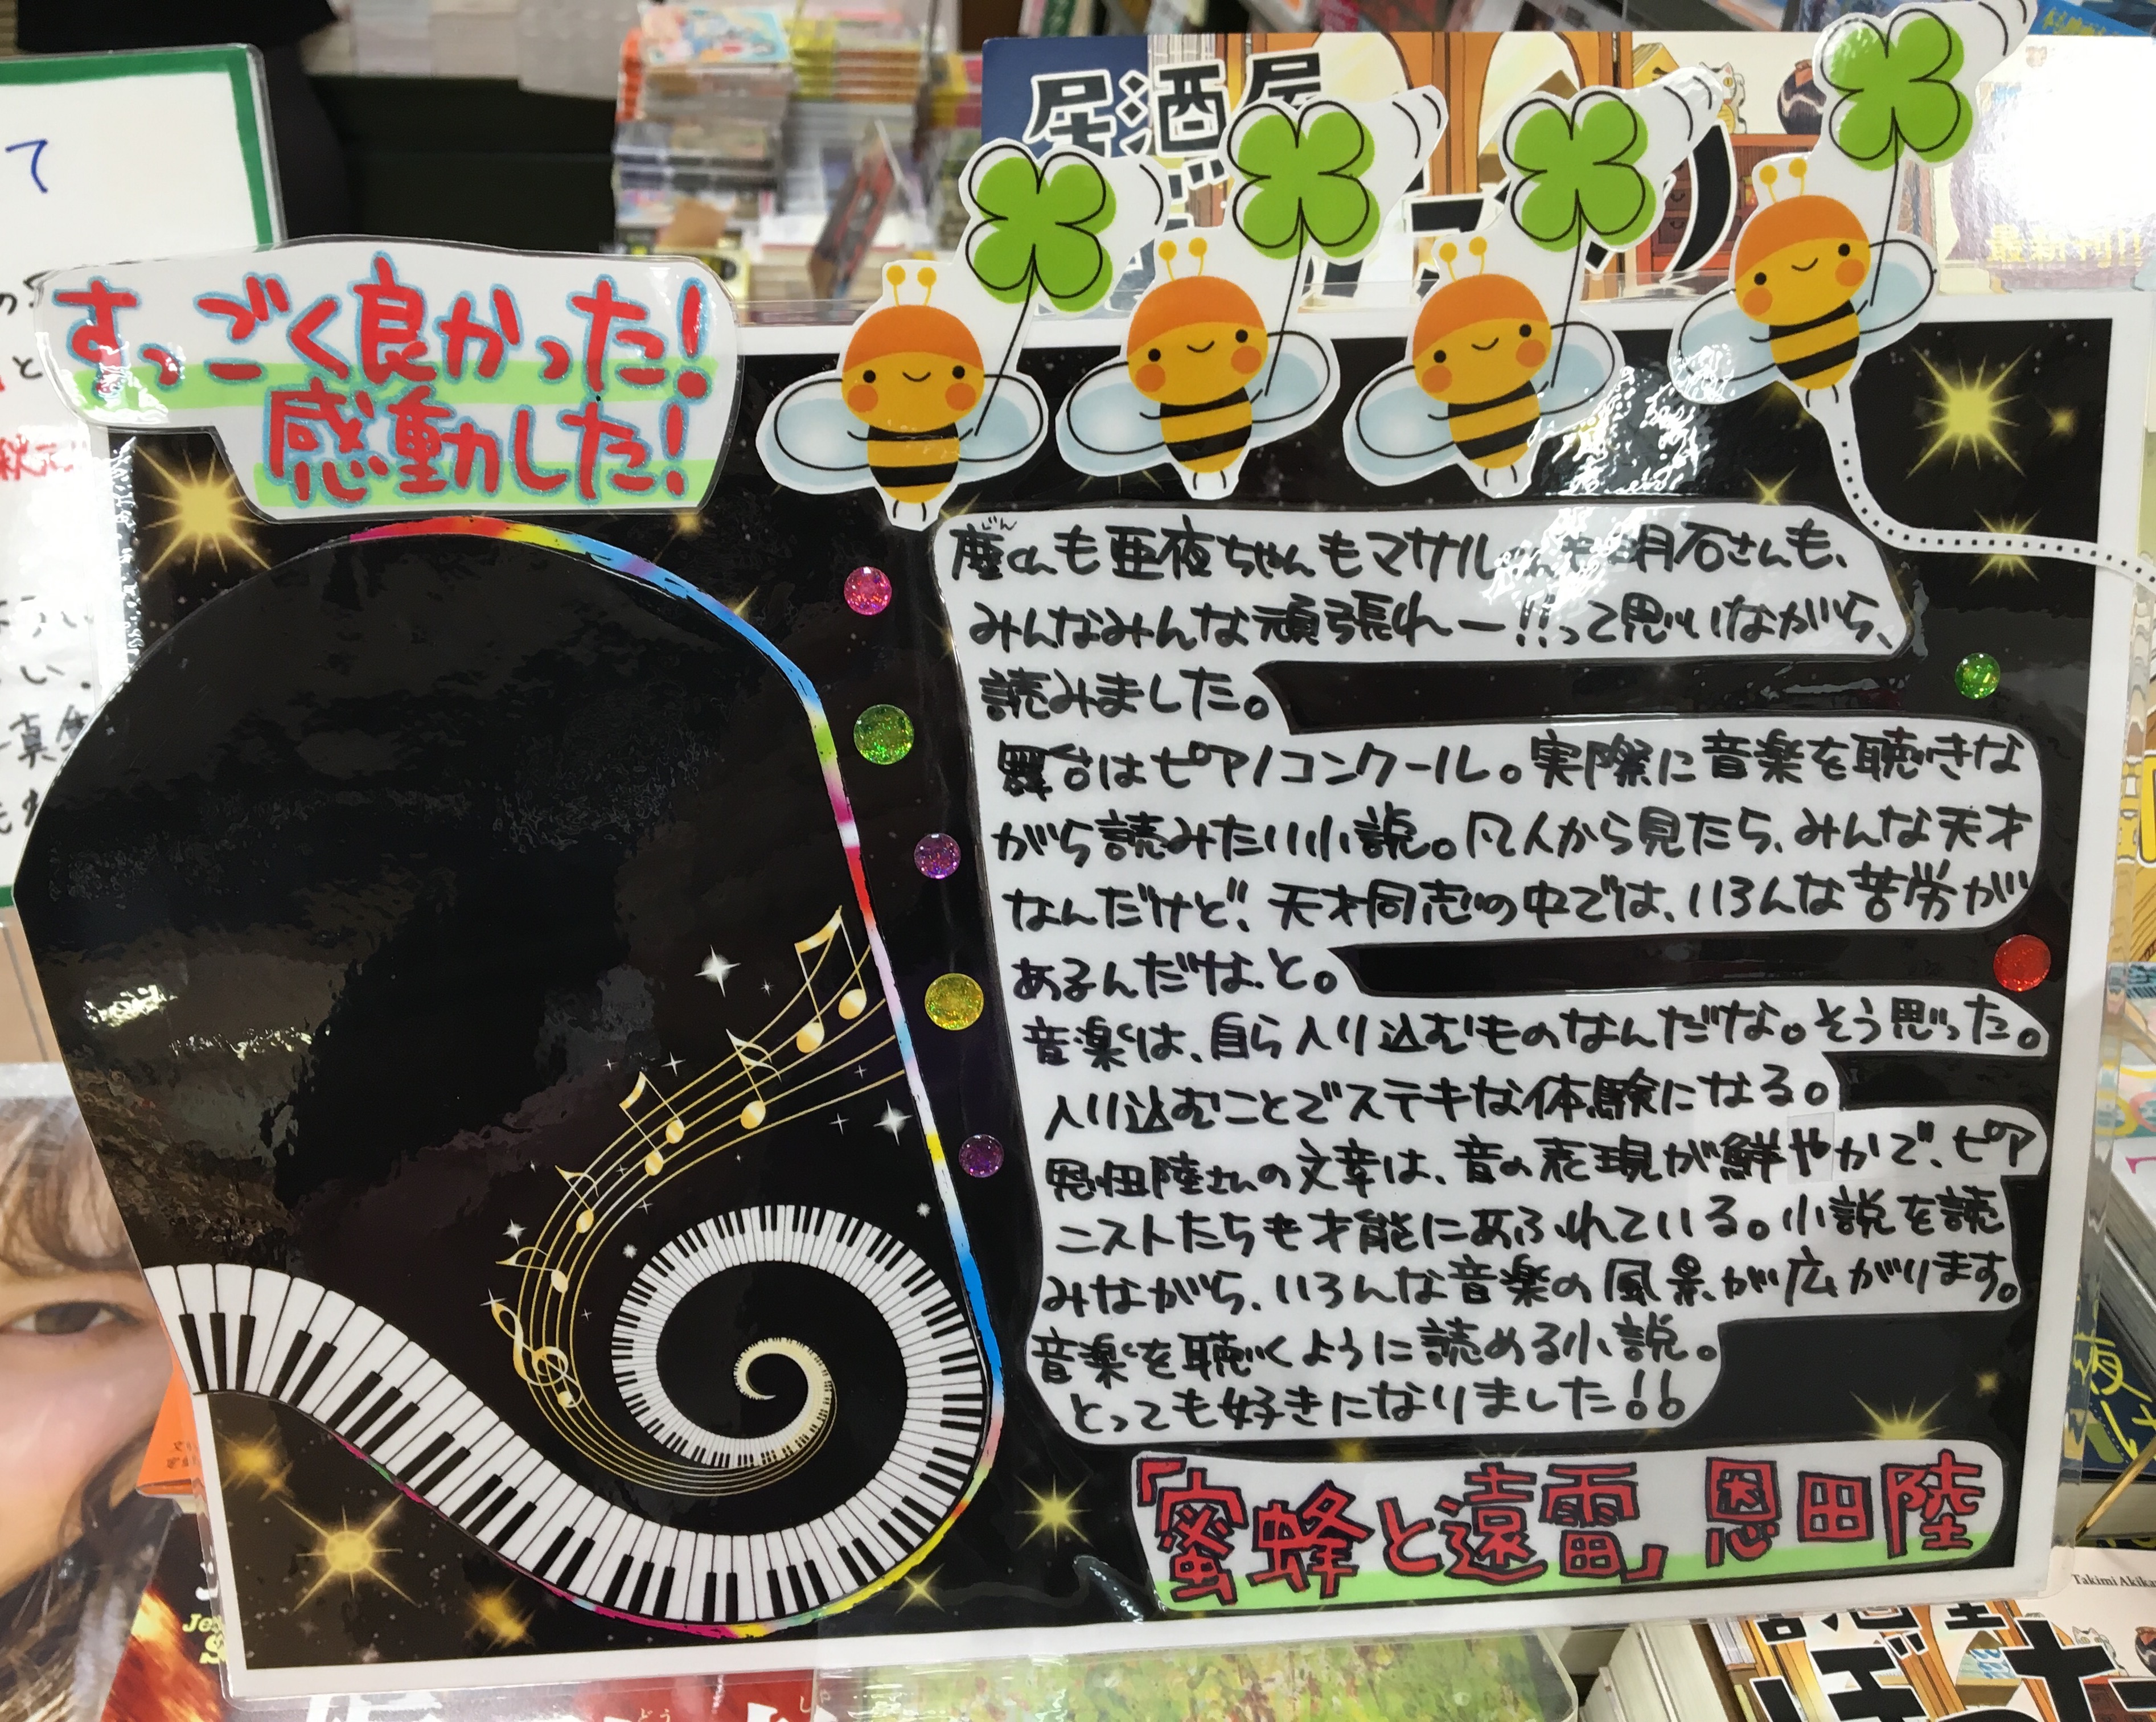 すっごく良かった!
感動した!
じん
塵くんも亜夜ちゃんもマサルくんも明石さんも、
みんなみんな頑張れー!!って思いながら、
読みました。
舞台はピアノコンクール。実際に音楽を聴きな
がら読みたい小説。凡人から見たら、みんな天才
なんだけど、天才同志の中では、いろんな苦労が
あるんだな、と。
音楽は、自ら入り込むものなんだな。そう思った。
入り込むことでステキな体験になる。
恩田陸さんの文章は、音の表現が鮮やかで、ピア
ニストたちも才能にあふれている。小説を読
みながら、いろんな音楽の風景が広がります。
音楽を聴くように読める小説。
とっても好きになりました!!
「蜜蜂と遠雷」 恩田陸
居酒屋
最新刊!!
Takimi Akika